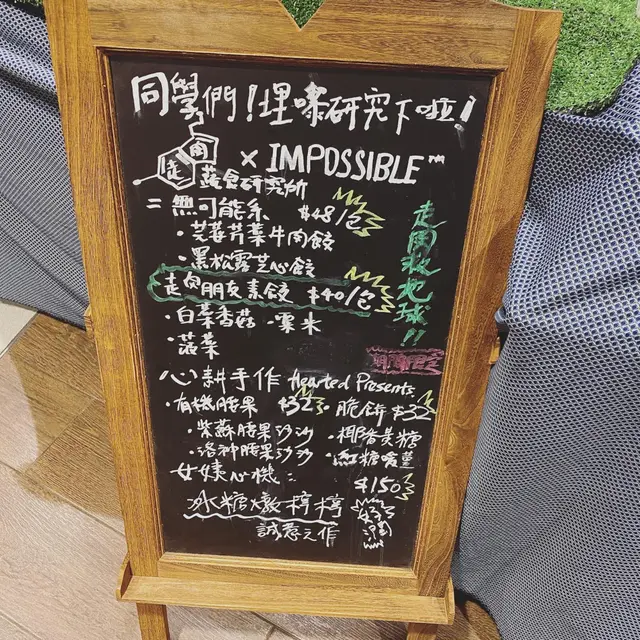 同學們！埋嚟研究下啦！
走肉 × IMPOSSIBLE™
蔬食研究所
= 無可能系 $48/包
・芫荽芹菜牛肉餃
・黑松露芝心餃
走肉朋友素餃 $40/包
・白菜香菇 ・粟米
・菠菜
走肉救地球!!
心耕手作 Hearted Presents
・有機腰果 $32 ・脆餅 $32
・紫蘇腰果沙沙 ・椰香黃糖
・洛神腰果沙沙 ・紅糖暖薑
女姨心機： $150
冰糖燉檸檸
誠意之作